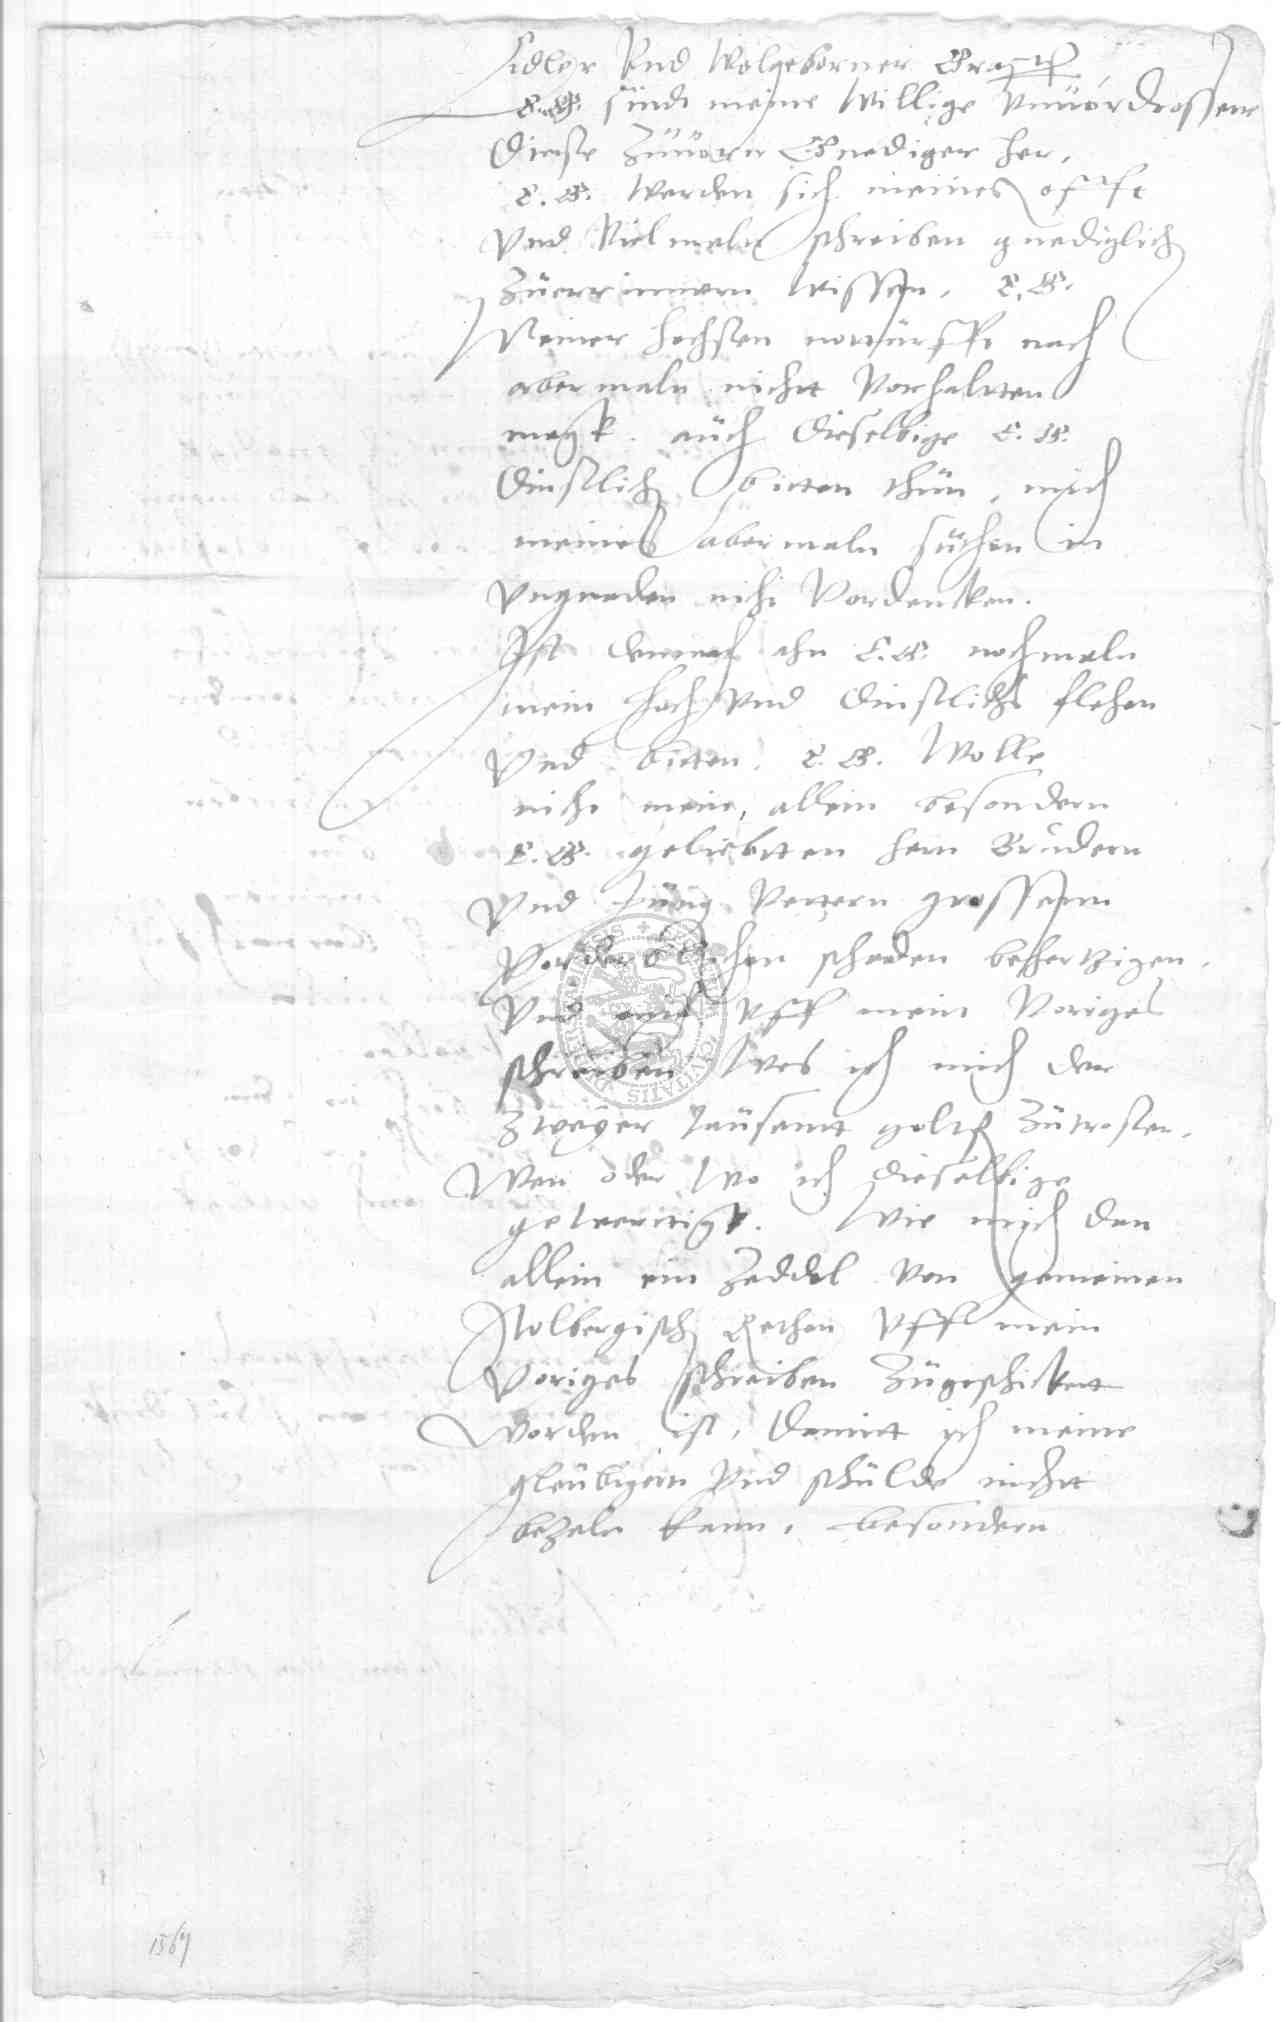 Edler Vnd Wolgeborner Graff
E. G. sindt meine Willige Vnuordrossene
Dienste Zuuorn Gnediger her,
E. G. Werden sich meines offt
Vnd Vielmaln schreiben gnediglich
Zuerrinnern Wissen, E. G.
Meiner hochsten notturfft nach
abermaln nicht Vorhaltten
magk. auch Dieselbige E. G.
Dinstlich bitten thun, mich
meines abermaln suchen in
Vngnaden nicht Vordencken.
Ist demnach ahn E. G. nochmaln
mein hoch Vnd Dinstlichs flehen
Vnd bitten, E. G. Wolle
nicht meine, allein besondern
E. G. geliebtten hern Brudern
Vnd Jung Vettern grossenn
Vorderblichen schaden behertzigen,
Vnd mich Vff mein Voriges
schreiben Wes ich mich der
Zweyer tausennt golt Zutrosten,
Wen oder Wo ich dieselbige
gewerttigk. Wie mich dan
allein ein Zeddel Von gemeinen
Stolbergisch Rethen Vff mein
Voriges schreiben Zugeschicktt
Worden ist, Damitt ich meine
gleubigern Vnd schulde nichtt
bezaln kann, besondern